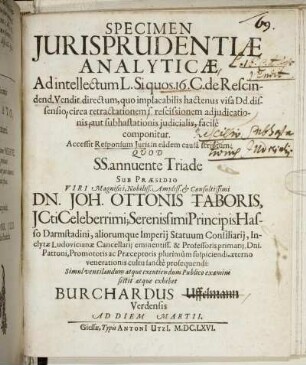 SPECIMEN
JURISPRUDENTIÆ
ANALYTICÆ
Ad intellectum L. Si quos. 16. C. de Rescin-
dend. Vendit. directum, quo implacabilis hactenus visa Dd. dis-
sensio, circa retractationem, & rescissionem adjudicatio-
nis, aut subhastationis judicialis, facilè
componitur.
Accessit Responsum Juris in eâdem causâ
QUOD
SS. annuente Triade
SUB PRÆSIDIO
VIRI Magnifici, Nobiliss. Ampliss. & Consultissimi
DN. JOH. OTTONIS TABORIS,
JCti Celeberrimi, Serenissimi Principis Has-
so Darmstadini, aliorumque Imperij Statuum Consiliarij, In-
clytæ Ludovicianæ Cancellarij eminentiss. & Professoris primarij, Dni.
Patroni, Promotoris ac Præceptoris plurimùm suspiciendi, æterno
venerationis cultu sanctè prosequendi
Simul ventilandum atque excutiendum Publico examini
sistit atque exhibet
BURCHARDUS Uffelmann
Verdensis
AD DIEM MARTII.
Giessæ, Typis ANTONI UTZI. M.DC.LXVI.
69.